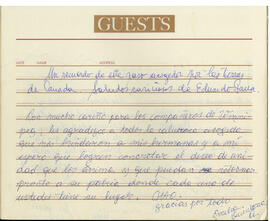 GUESTS
DATE NAME ADDRESS
Un recuerdo de este paso acogedor por las tierras
de Canada. Saludos cariñosos de Eduardo
Con mucho cariño para los compañeros de Winni-
peg, les agradezco a todos la calurosa acogida
que nos brindaron a mis hermanos y a mi
espero que logren concretar el deseo de uni-
dad que los anima y que puedan retornar
pronto a su patria donde cada uno de
ustedes tiene su lugar.
gracias por todo